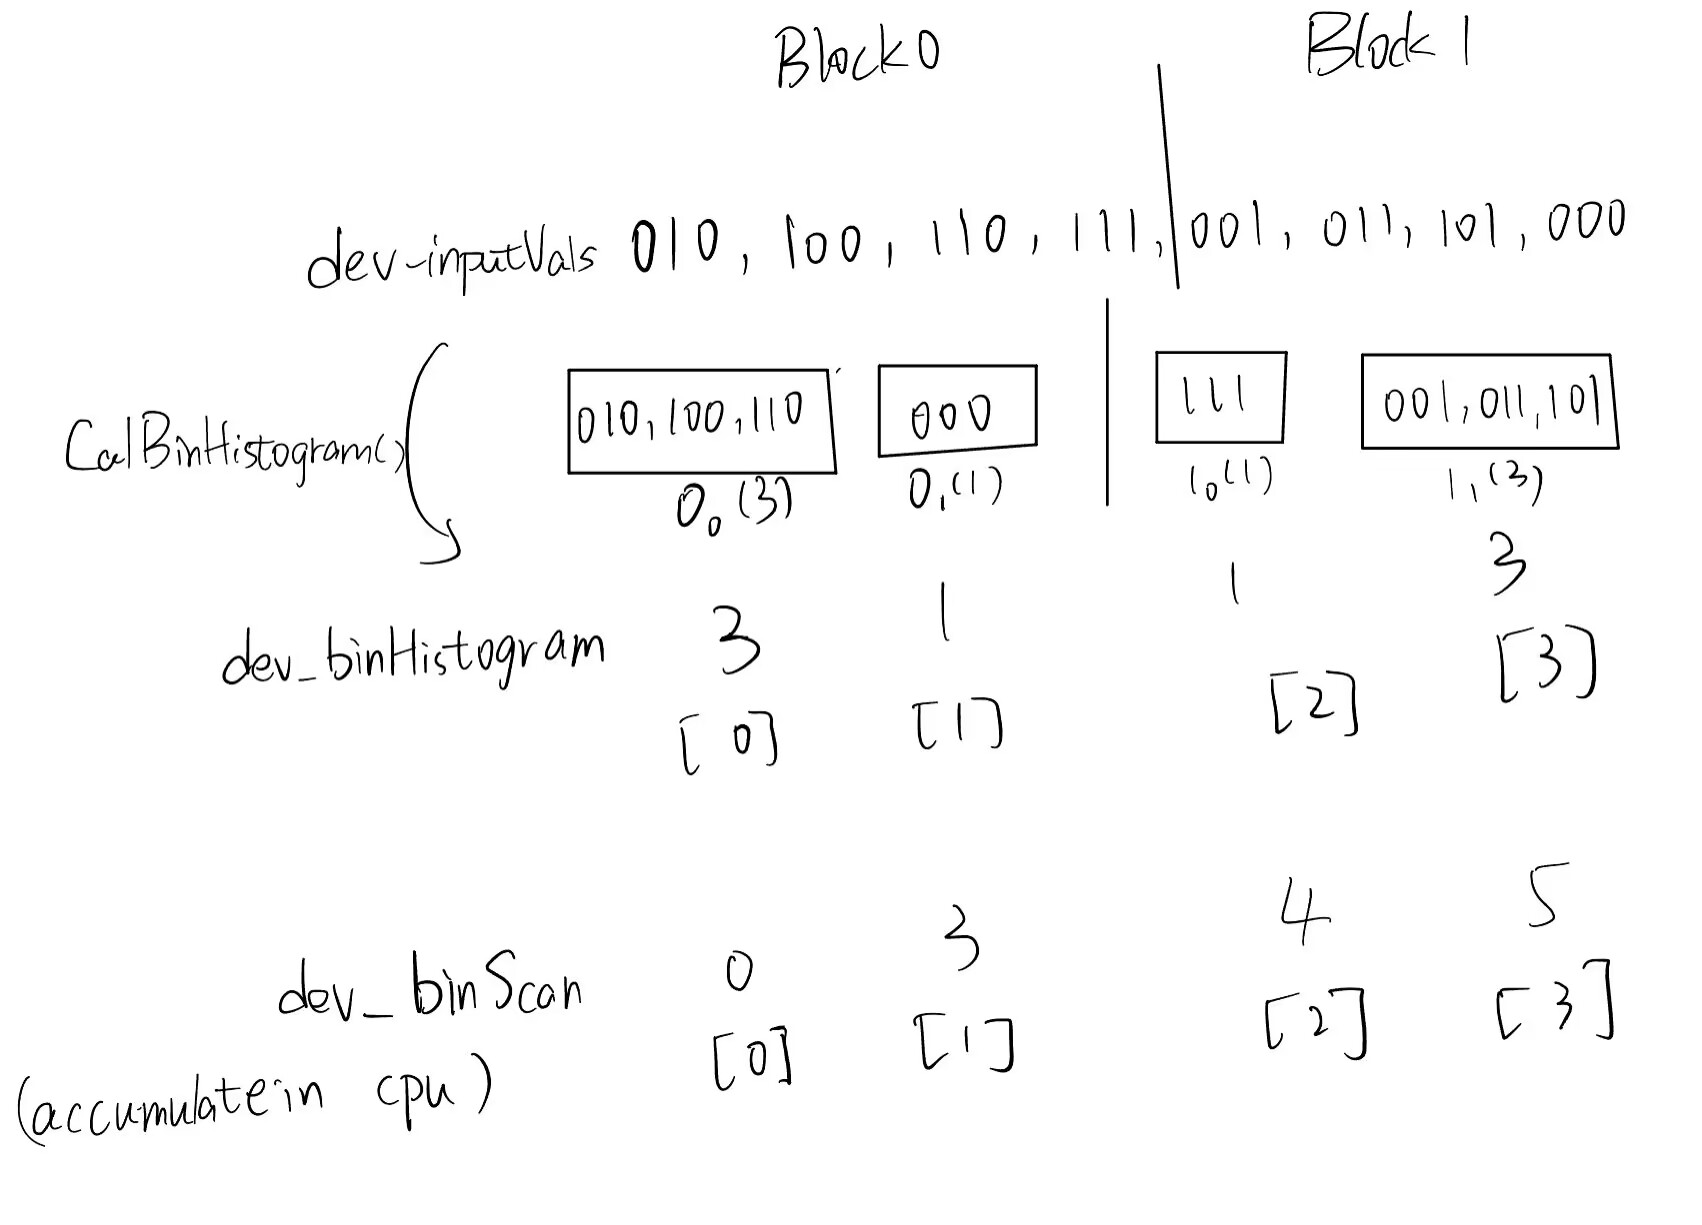 Block 0 Block 1
dev-inputVals 010, 100, 110, 111, 001, 011, 101, 000
CalBinHistogram() 010, 100, 110 000 111 001, 011, 101
0₀(3) 0₁(1) 1₀(1) 1₁(3)
dev_binHistogram 3 1 1 3
[0] [1] [2] [3]
dev_binScan 0 3 4 5
[0] [1] [2] [3]
(accumulate in cpu)